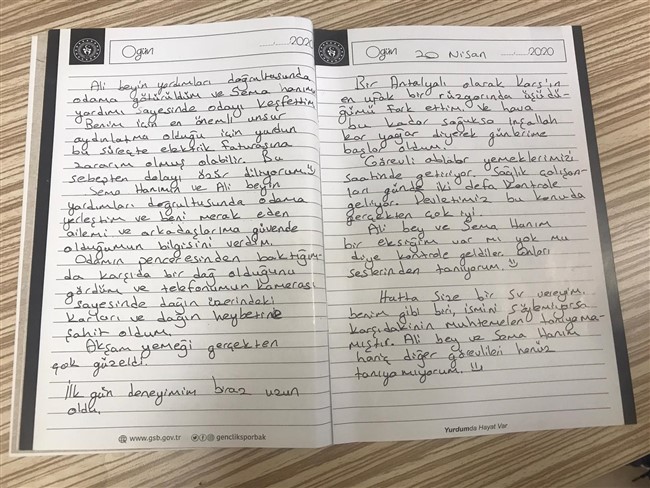 Ogün ....... 2020
Ali beyin yardımları doğrultusunda
odama götürüldüm ve Sema hanımın
yardımı sayesinde odayı keşfettim.
Benim için en önemli unsur
aydınlatma olduğu için yurdun
bu süreçte elektrik faturasına
zararım olmuş olabilir. Bu
sebepten dolayı özür diliyorum.
Sema Hanımın ve Ali beyin
yardımları doğrultusunda odama
yerleştim ve beni merak eden
ailemi ve arkadaşlarıma güvende
olduğumun bilgisini verdim.
Odamın penceresinden baktığım-
da karşıda bir dağ olduğunu
gördüm ve telefonumun kamerası
sayesinde dağın üzerindeki
karları ve dağın heybetine
şahit oldum.
Akşam yemeği gerçekten
çok güzeldi.
İlk gün deneyimim biraz uzun
oldu.
www.gsb.gov.tr gencliksporbak
Ogün 20 Nisan 2020
Bir Antalyalı olarak Karş'ın
en ufak bir rüzgarında üşüdü-
ğümü fark ettim ve hava
bu kadar soğuksa inşallah
kar yağar diyerek günlerime
başlar oldum.
Görevli ablalar yemeklerimizi
saatinde getiriyor. Sağlık çalışan-
ları günde iki defa kontrole
geliyor. Devletimiz bu konuda
gerçekten çok iyi.
Ali bey ve Sema Hanım
bir eksiğim var mı yok mu
diye kontrole geldiler. Onları
seslerinden tanıyorum.
Hatta size bir sır vereyim.
benim gibi biri, ismini söylemiyorsa
karşıdakinin muhtemelen tanıyama-
mıştır. Ali bey ve Sema Hanım
hariç diğer görevlileri henüz
tanıyamıyorum.
Yurdumda Hayat Var